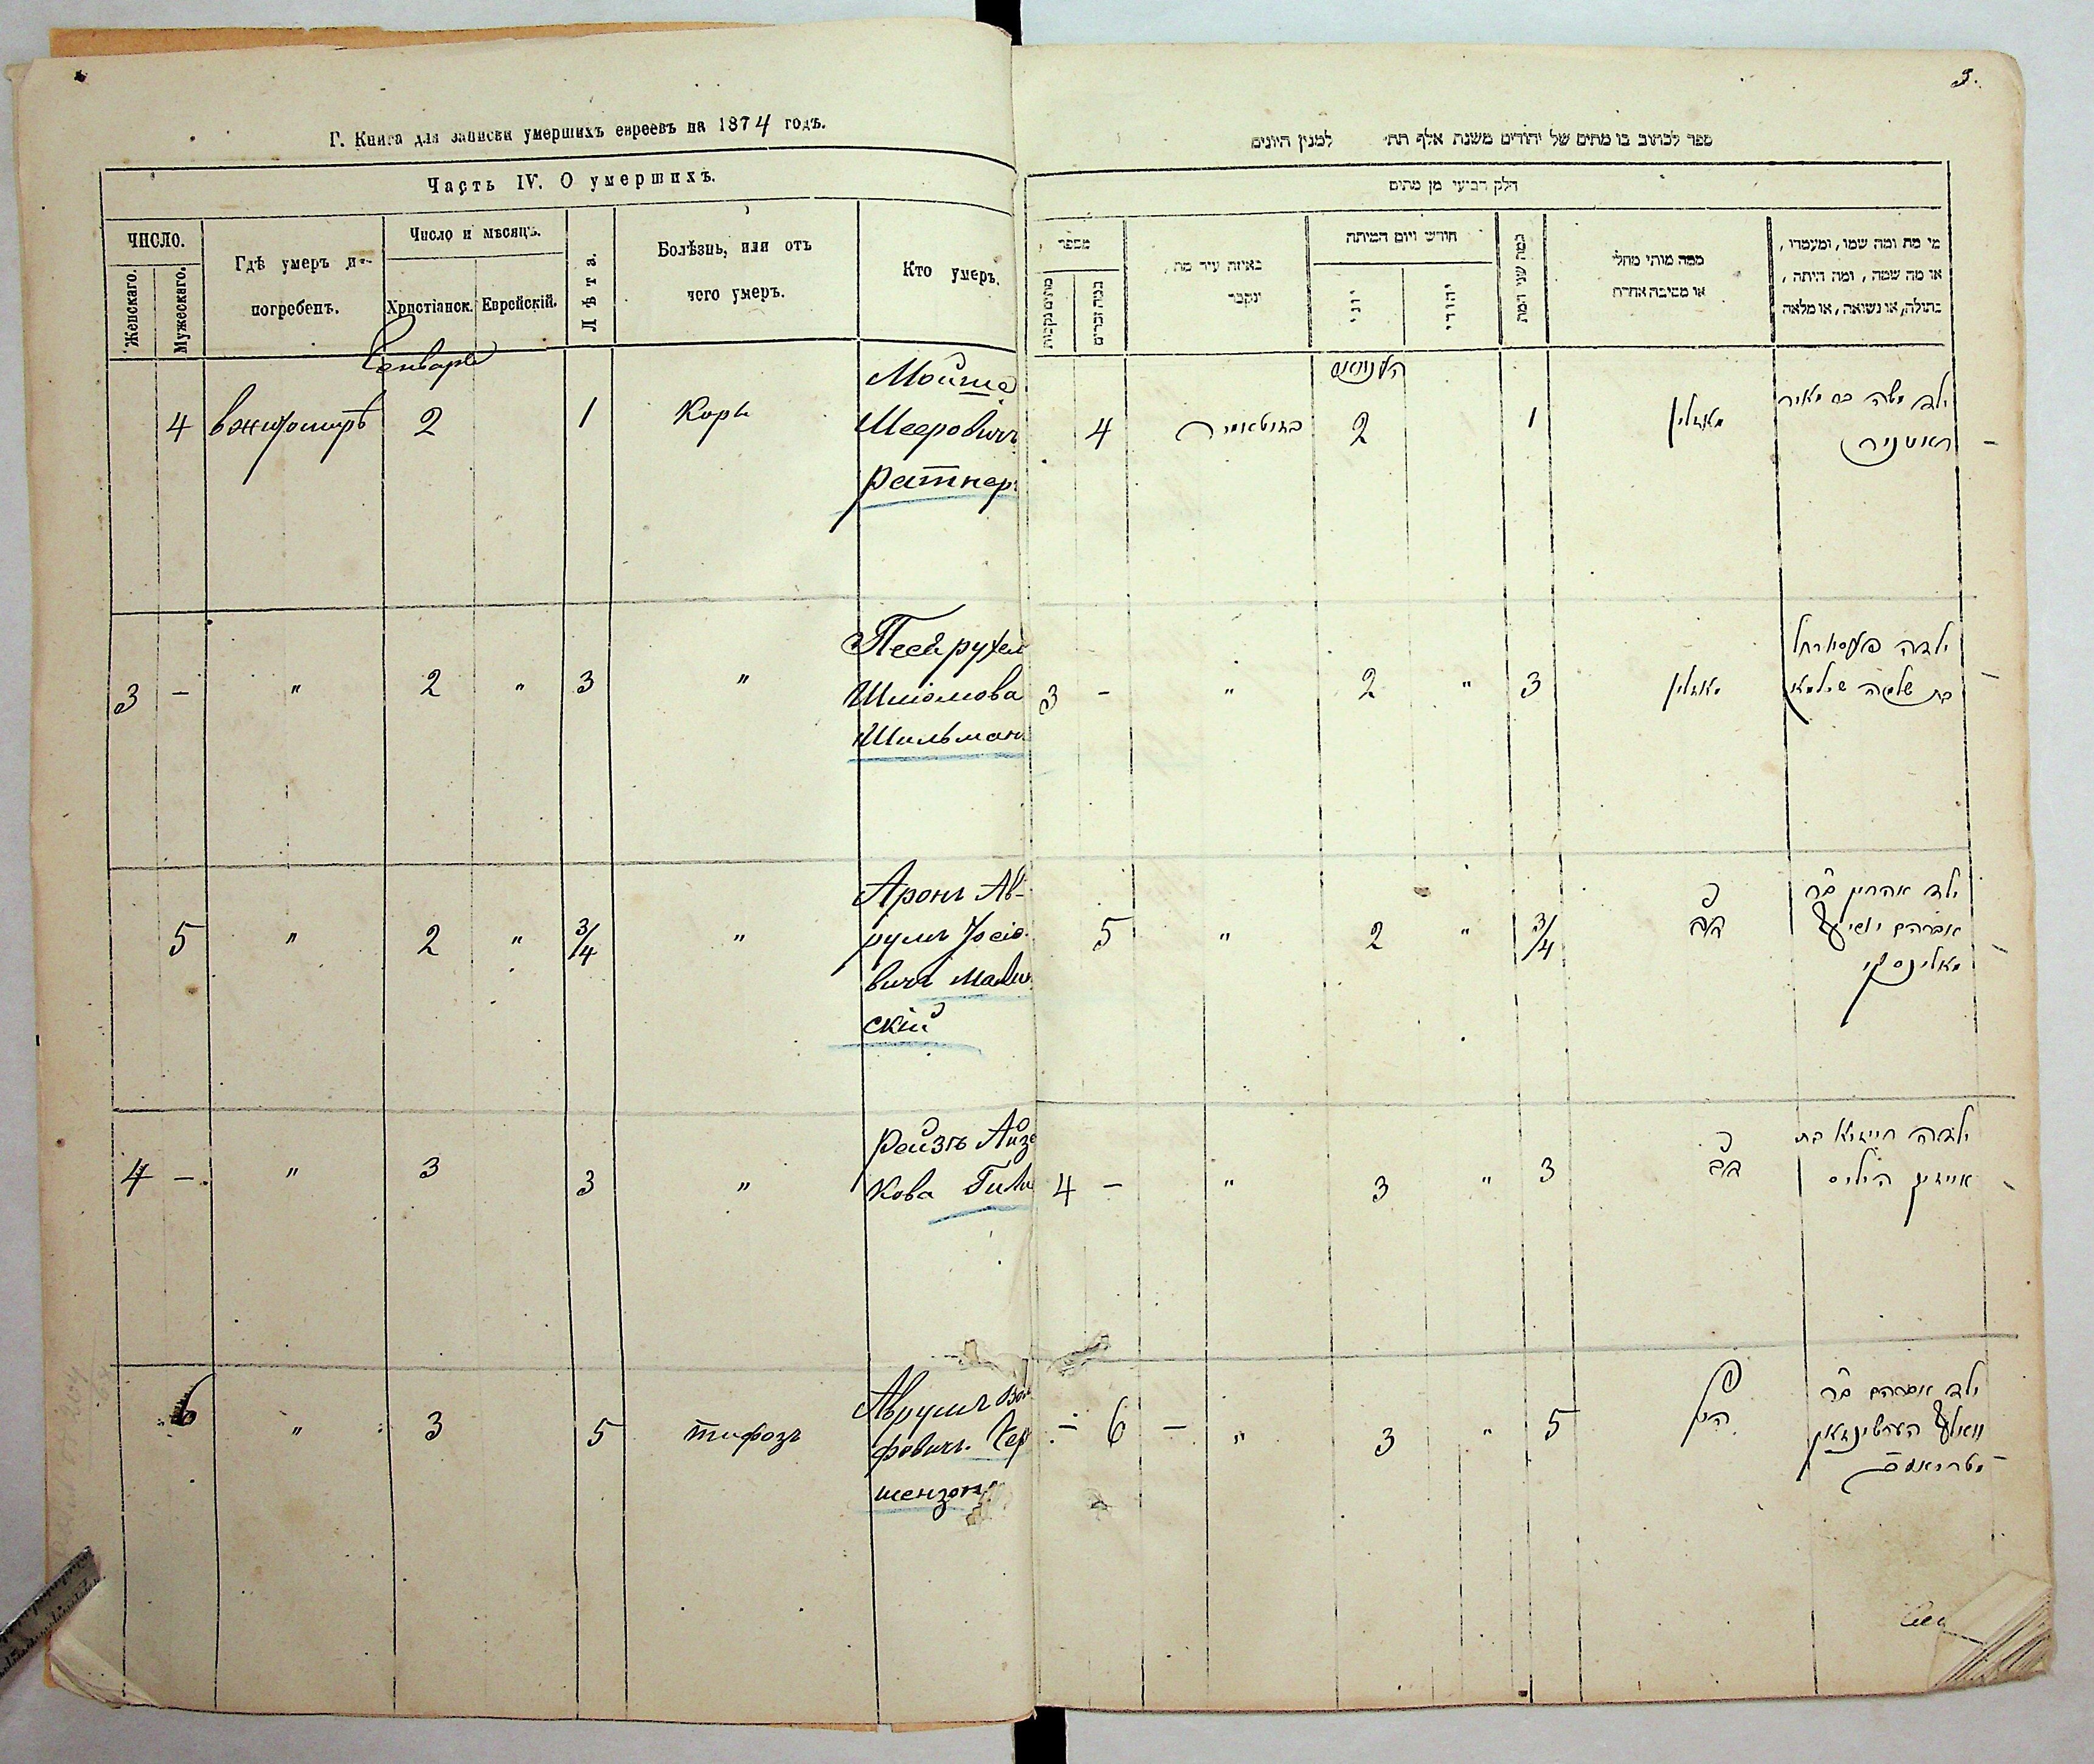 Г. Книга для записки умершихъ евреевъ на 1874 годъ.
Часть IV. О умершихъ.
ЧИСЛО.
Женскаго.
Мужескаго.
Гдѣ умеръ и
погребенъ.
Число и мѣсяцъ.
Христіанск.
Еврейскій.
Лѣта.
Болѣзнь, или отъ
чего умеръ.
Кто умеръ.
Января
4 вжитомирѣ 2 1 Корь
Мойше
Мееровичъ
Ратнеръ
3 - " 2 " 3 "
Песя рухля
Шліомова
Шильман
5 " 2 " 3/4 "
Аронъ Ав-
румъ Іосіо-
вичъ Малин
скій
4 - " 3 3 "
Рейзя Айзи
кова Гили
6 " 3 5 тифозъ
Аврумъ Воль
фовичъ Гер
шензонъ
3.
ספר לכתוב בו מתים של יהודים משנת אלף תת' למנין היונים
חלק רביעי מן מתים
מספר
כמה זכרים
באיזה עיר מת,
ונקבר
חודש ויום המיתה
יוני
יהודי
כמה שני המת
ממה מותו מחלי
או מסיבה אחרת
מי מת ומה שמו, ומעמדו,
או מה שמה, ומה היתה,
בתולה, או נשואה, או מלאה
4 2 1 מאזלין
ילד משה בר מאיר
ראטניר
3 - " 2 " 3 מאזלין
ילדה פעסי רחל
בת שלמה שילמאן
5 " 2 " 3/4
ילד אהרון ב"ר
אברהם יושיע
מאלינסקי
4 - " 3 " 3
ילדה רייזיא בת
אייזיק היליס
- 6 - " 3 " 5
ילד אברהם ב"ר
וואלף הערשינזאן